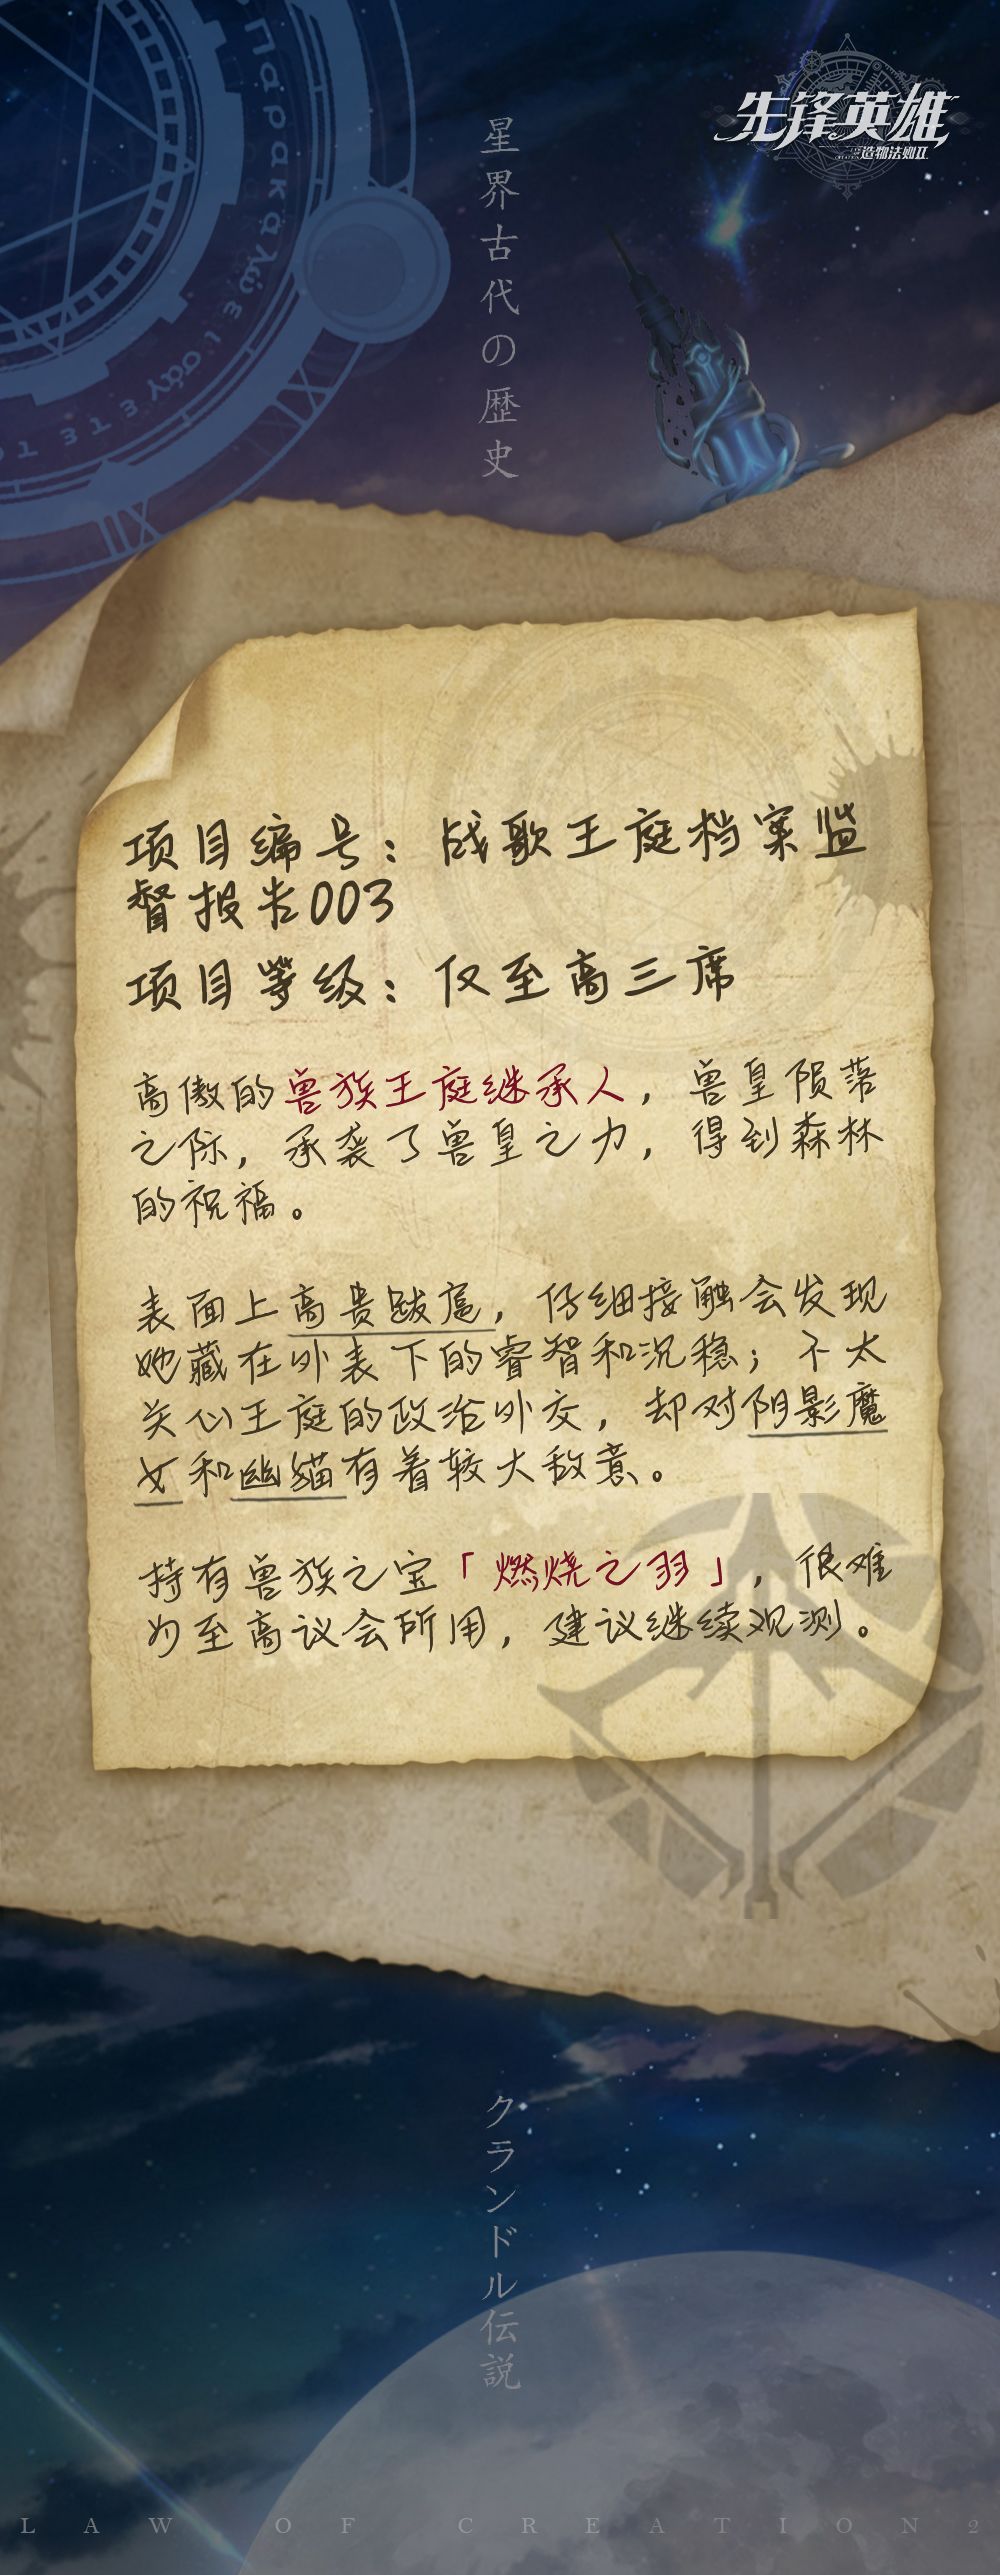 先锋英雄
造物法则II
星界古代の歴史
项目编号：战歌王庭档案监
督报告003
项目等级：仅至高三席
高傲的兽族王庭继承人，兽皇陨落
之际，承袭了兽皇之力，得到森林
的祝福。
表面上高贵跋扈，仔细接触会发现
她藏在外表下的睿智和沉稳；不太
关心王庭的政治外交，却对阴影魔
女和幽貓有着较大敌意。
持有兽族之宝「燃烧之羽」，很难
为至高议会所用，建议继续观测。
クランドル伝説
LAW OF CREATION2